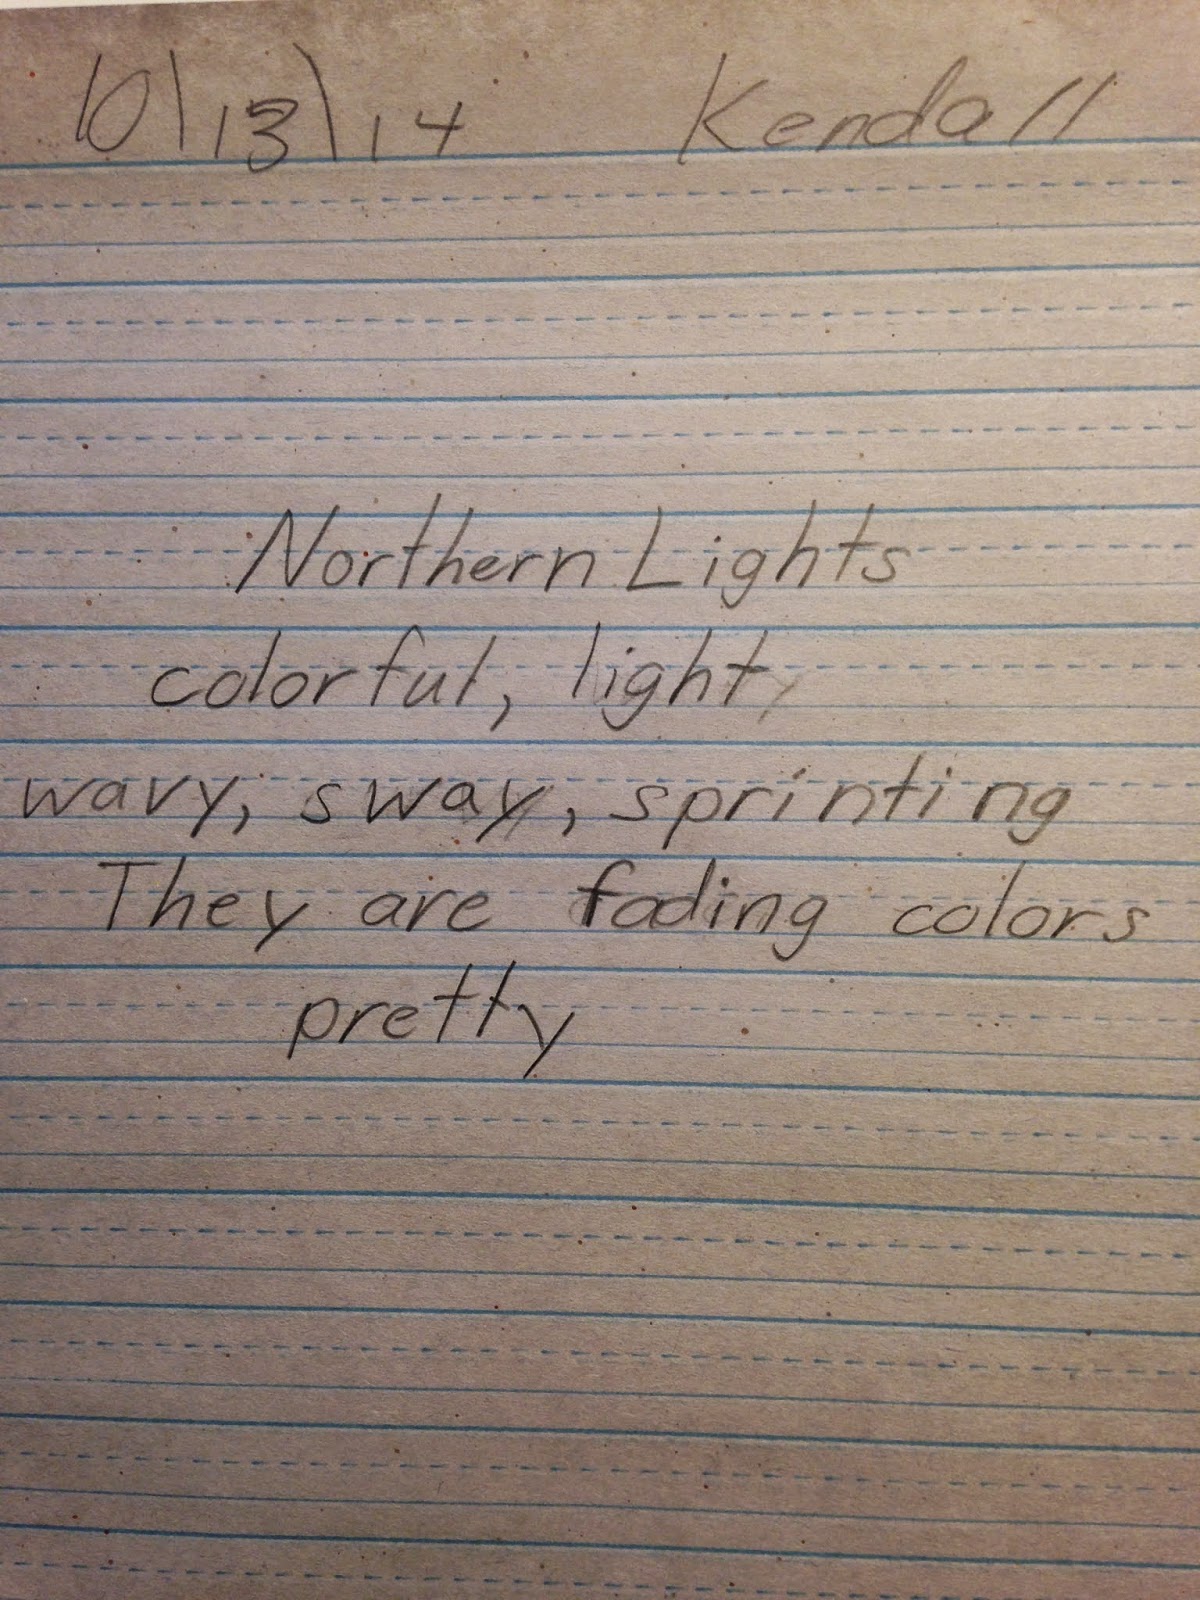 10\13\14 Kendall
Northern Lights
colorful, light
wavy, sway, sprinting
They are fading colors
pretty